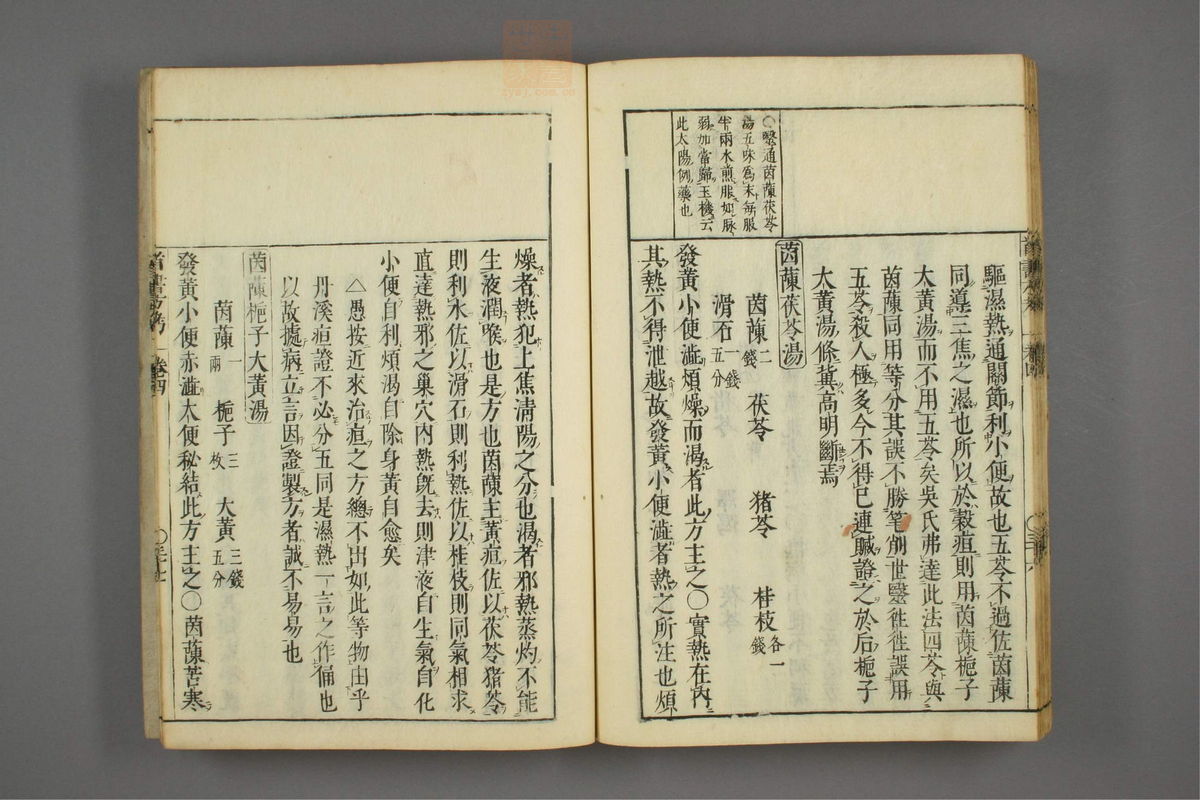 ○醫通茵蔯茯苓
湯五味爲末每服
半兩水煎服如脉
弱加當歸玉機云
此太陽例藥也
驅濕熱通關節利小便故也五苓不過佐茵蔯
同導三焦之濕也所以於穀疸則用茵蔯梔子
大黃湯而不用五苓矣吳氏弗達此法四苓與
茵蔯同用等分其誤不勝筆削世醫徃徃誤用
五苓殺人極多今不得已連贓證之於后梔子
大黃湯條冀高明斷焉
茵蔯茯苓湯
茵蔯二錢 茯苓 猪苓 桂枝各一錢
滑石一錢五分
發黃小便澁煩燥而渴者此方主之○實熱在內
其熱不得泄越故發黃小便澁者熱之所注也煩
燥者熱犯上焦清陽之分也渴者邪熱蒸灼不能
生液潤喉也是方也茵蔯主黃疸佐以茯苓猪苓
則利水佐以滑石則利熱佐以桂枝則同氣相求
直達熱邪之巢穴內熱旣去則津液自生氣自化
小便自利煩渴自除身黃自愈矣
△愚按近來治疸之方總不出如此等物由乎
丹溪疸證不必分五同是濕熱一言之作俑也
以故據病立言因證製方者誠不易易也
茵蔯梔子大黃湯
茵蔯一兩 梔子三枚 大黃三錢五分
發黃小便赤澁大便秘結此方主之○茵蔯苦寒
卷四
○三十七
zysj.com.cn